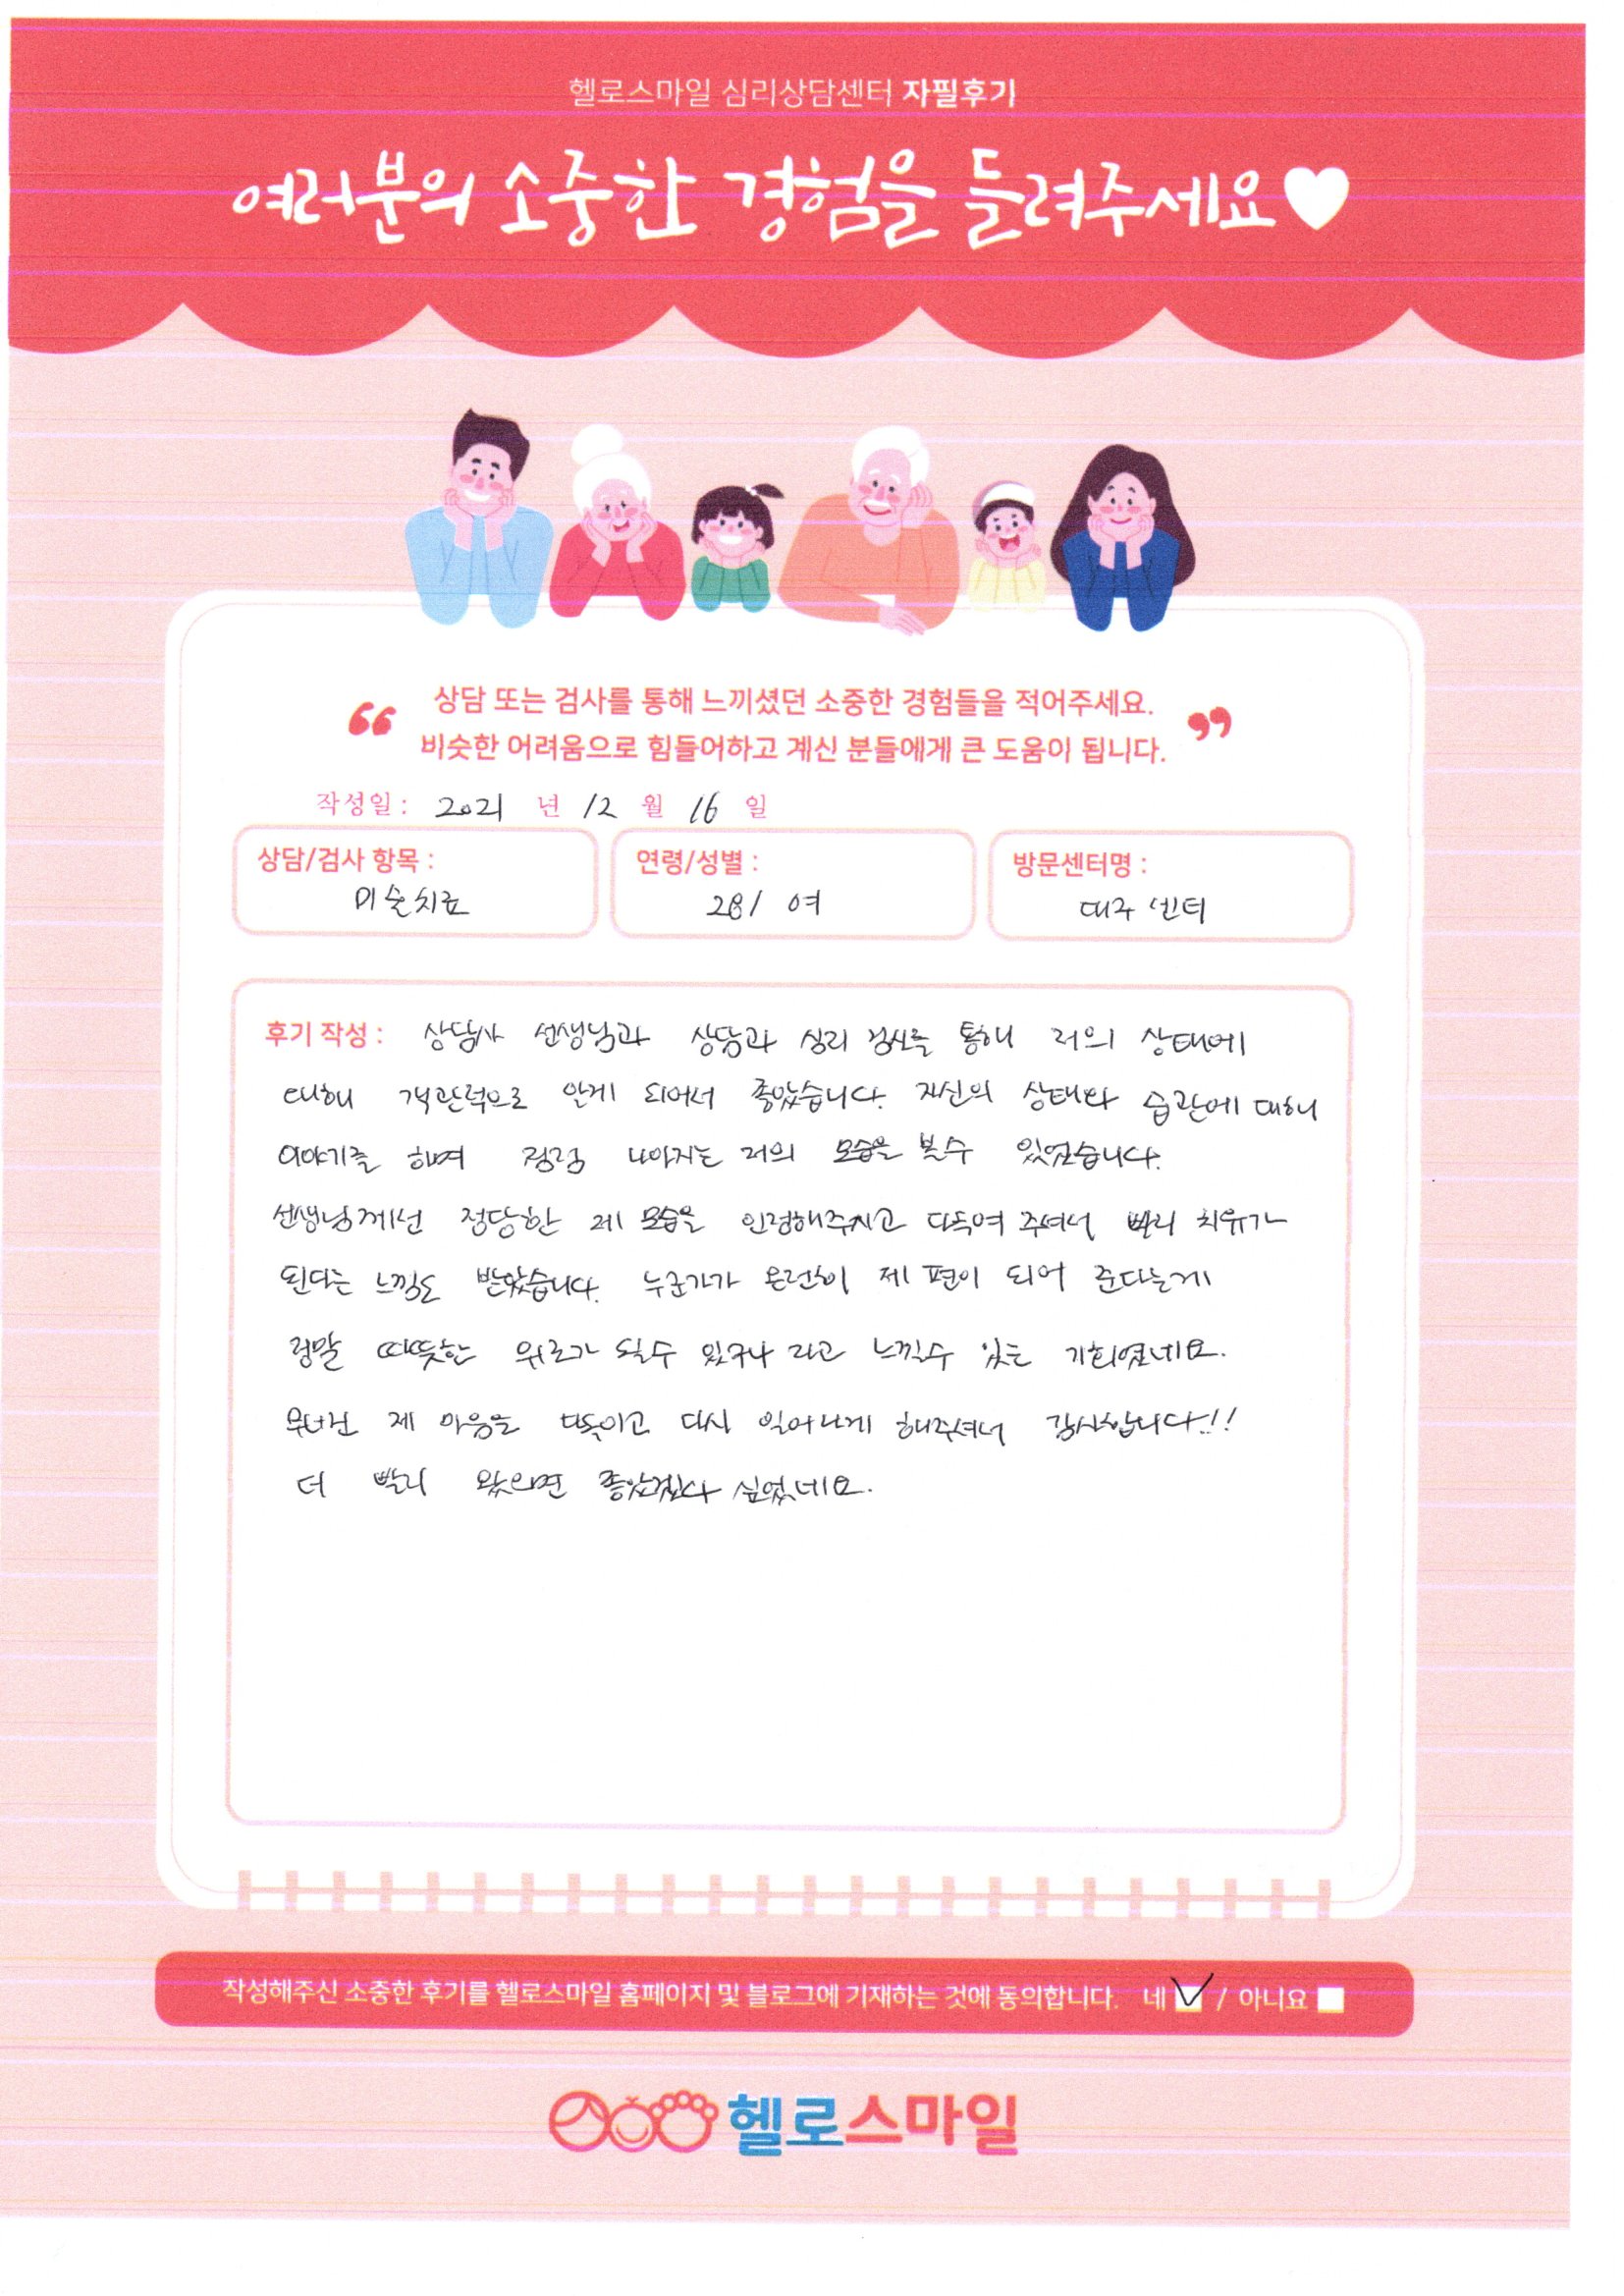 헬로스마일 심리상담센터 자필후기
여러분의 소중한 경험을 들려주세요
상담 또는 검사를 통해 느끼셨던 소중한 경험들을 적어주세요.
비슷한 어려움으로 힘들어하고 계신 분들에게 큰 도움이 됩니다.
작성일 : 2021 년 12 월 16 일
상담/검사 항목 : 연령/성별 : 방문센터명 :
미술치료 28/ 여 대구 센터
후기 작성 : 상담사 선생님과 상담과 심리 검사를 통해 저의 상태에
대해 객관적으로 알게 되어서 좋았습니다. 자신의 상태와 습관에 대해
이야기를 하며 점점 나아지는 저의 모습을 볼수 있었습니다.
선생님께선 정당한 제 모습을 인정해주시고 다독여 주셔서 빨리 치유가
된다는 느낌도 받았습니다. 누군가가 온전히 제 편이 되어 준다는게
정말 따뜻한 위로가 될수 있구나 라고 느낄수 있는 기회였네요.
무너진 제 마음을 다독이고 다시 일어나게 해주셔서 감사합니다!!
더 빨리 왔으면 좋았겠다 싶었네요.
작성해주신 소중한 후기를 헬로스마일 홈페이지 및 블로그에 기재하는 것에 동의합니다. 네 / 아니요
헬로스마일